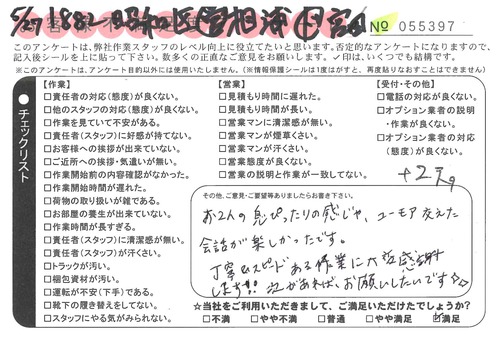 5/27
№ 055397
このアンケートは、弊社作業スタッフのレベル向上に役立てたいと思います。否定的なアンケートになりますので、
記入後シールを上に貼って下さい。数多くの正直なご意見をお願いします。✓印は、いくつでも結構です。
※このアンケートは、アンケート目的以外には使用いたしません。(※情報保護シールは1度はがすと、再度貼りなおすことはできません)
チェックリスト
【作業】
□責任者の対応(態度)が良くない。
□他のスタッフの対応(態度)が良くない。
□作業を見ていて不安がある。
□責任者(スタッフ)に好感が持てない。
□お客様への挨拶が出来ていない。
□ご近所への挨拶・気遣いが無い。
□作業開始前の内容確認がなかった。
□作業開始時間が遅れた。
□荷物の取り扱いが雑である。
□お部屋の養生が出来ていない。
□作業時間が長すぎる。
□責任者(スタッフ)に清潔感が無い。
□責任者(スタッフ)が汗くさい。
□トラックが汚い。
□梱包資材が汚い。
□運転が不安(下手)である。
□靴下の履き替えをしてない。
□スタッフにやる気がみられない。
【営業】
□見積もり時間に遅れた。
□見積もり時間が長い。
□営業マンに清潔感が無い。
□営業マンが煙草くさい。
□営業マンが汗くさい。
□営業態度が良くない。
□営業の説明と作業が一致してない。
【受付・その他】
□電話の対応が良くない。
□オプション業者の説明
・作業が良くない。
□オプション業者の対応
(態度)が良くない。
その他、ご意見・ご要望等ありましたらお書き下さい。
お2人の息ぴったりの感じや、ユーモア交えた
会話が楽しかったです。
丁寧&スピードある作業に大変感謝
します!! 次があれば、お願いしたいです☆☆
☆当社をご利用いただきまして、ご満足いただけたでしょうか?
□不満 □やや不満 □普通 □やや満足 ☑満足